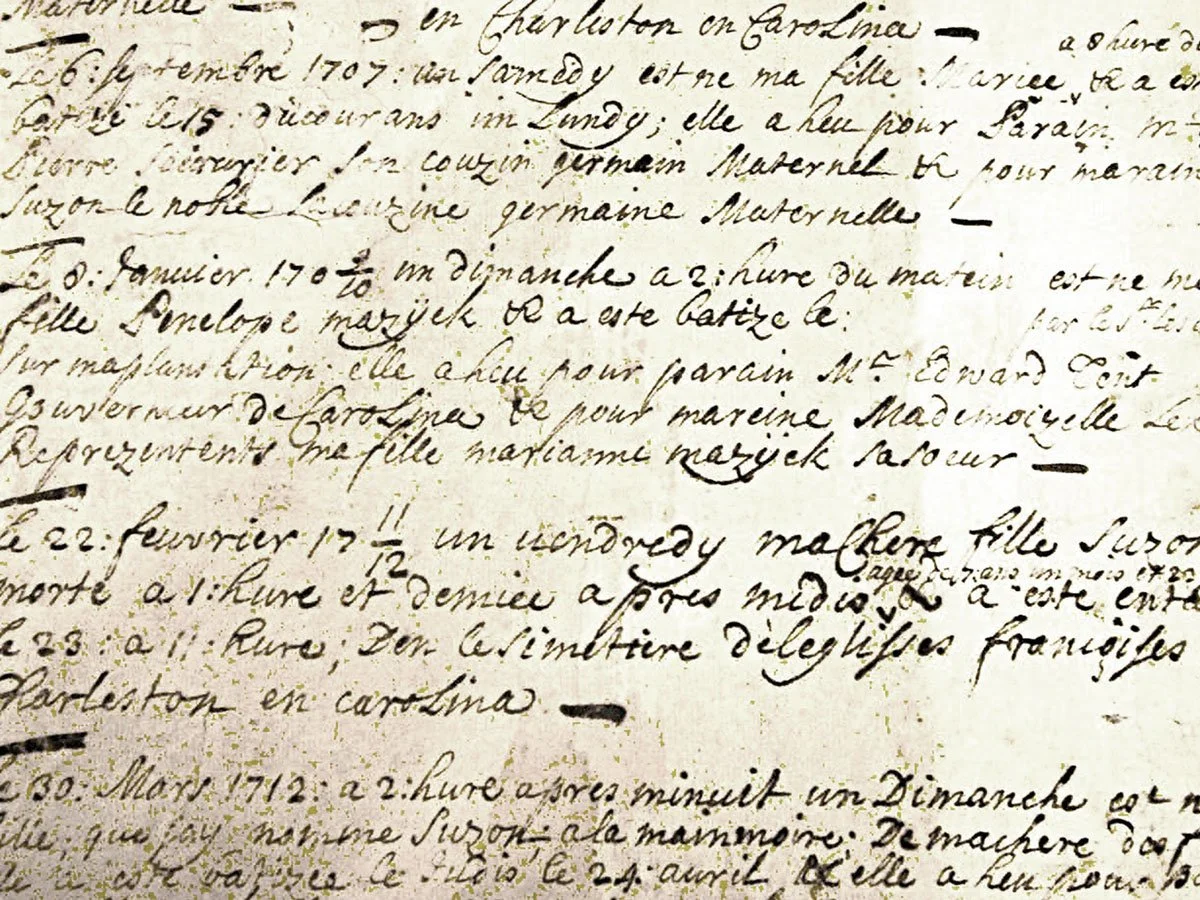 Maternelle
en Charleston en Carolina
a 8 hure du
Le 6: septembre 1707: un samedy est ne ma fille Mariee & a est
batize le 15: ducourans un Lundy; elle a heu pour Parain, mr
Pierre son couzin germain Maternel & pour marain
Suzon le noble couzine germaine Maternelle
Le 8: Janvier 170 9/10 un dimanche a 2: hure du matein est ne ma
fille Penelope mazijck & a este batize le: par le Sr
sur maplantation: elle a heu pour parain Mr Edward Tent
Gouverneur de Carolina & pour mareine Mademoizelle
Reprezentents ma fille marianne mazijck sa soeur
Le 22: feuvrier 17 11/12 un vendredy machere fille Suzon
agee de 7: ans un mois et 22
morte a 1: hure et demiee apres midis & a este ente
le 23: a 11: hure; Den le simetiere deleglisses francoises
Charleston en carolina
Le 30: Mars 1712: a 2: hure apres minuit un Dimanche est n
fille; que jay nomme Suzon; ala mainmoire; De machere
este batizee le Judis le 24: avril & elle a heu pour